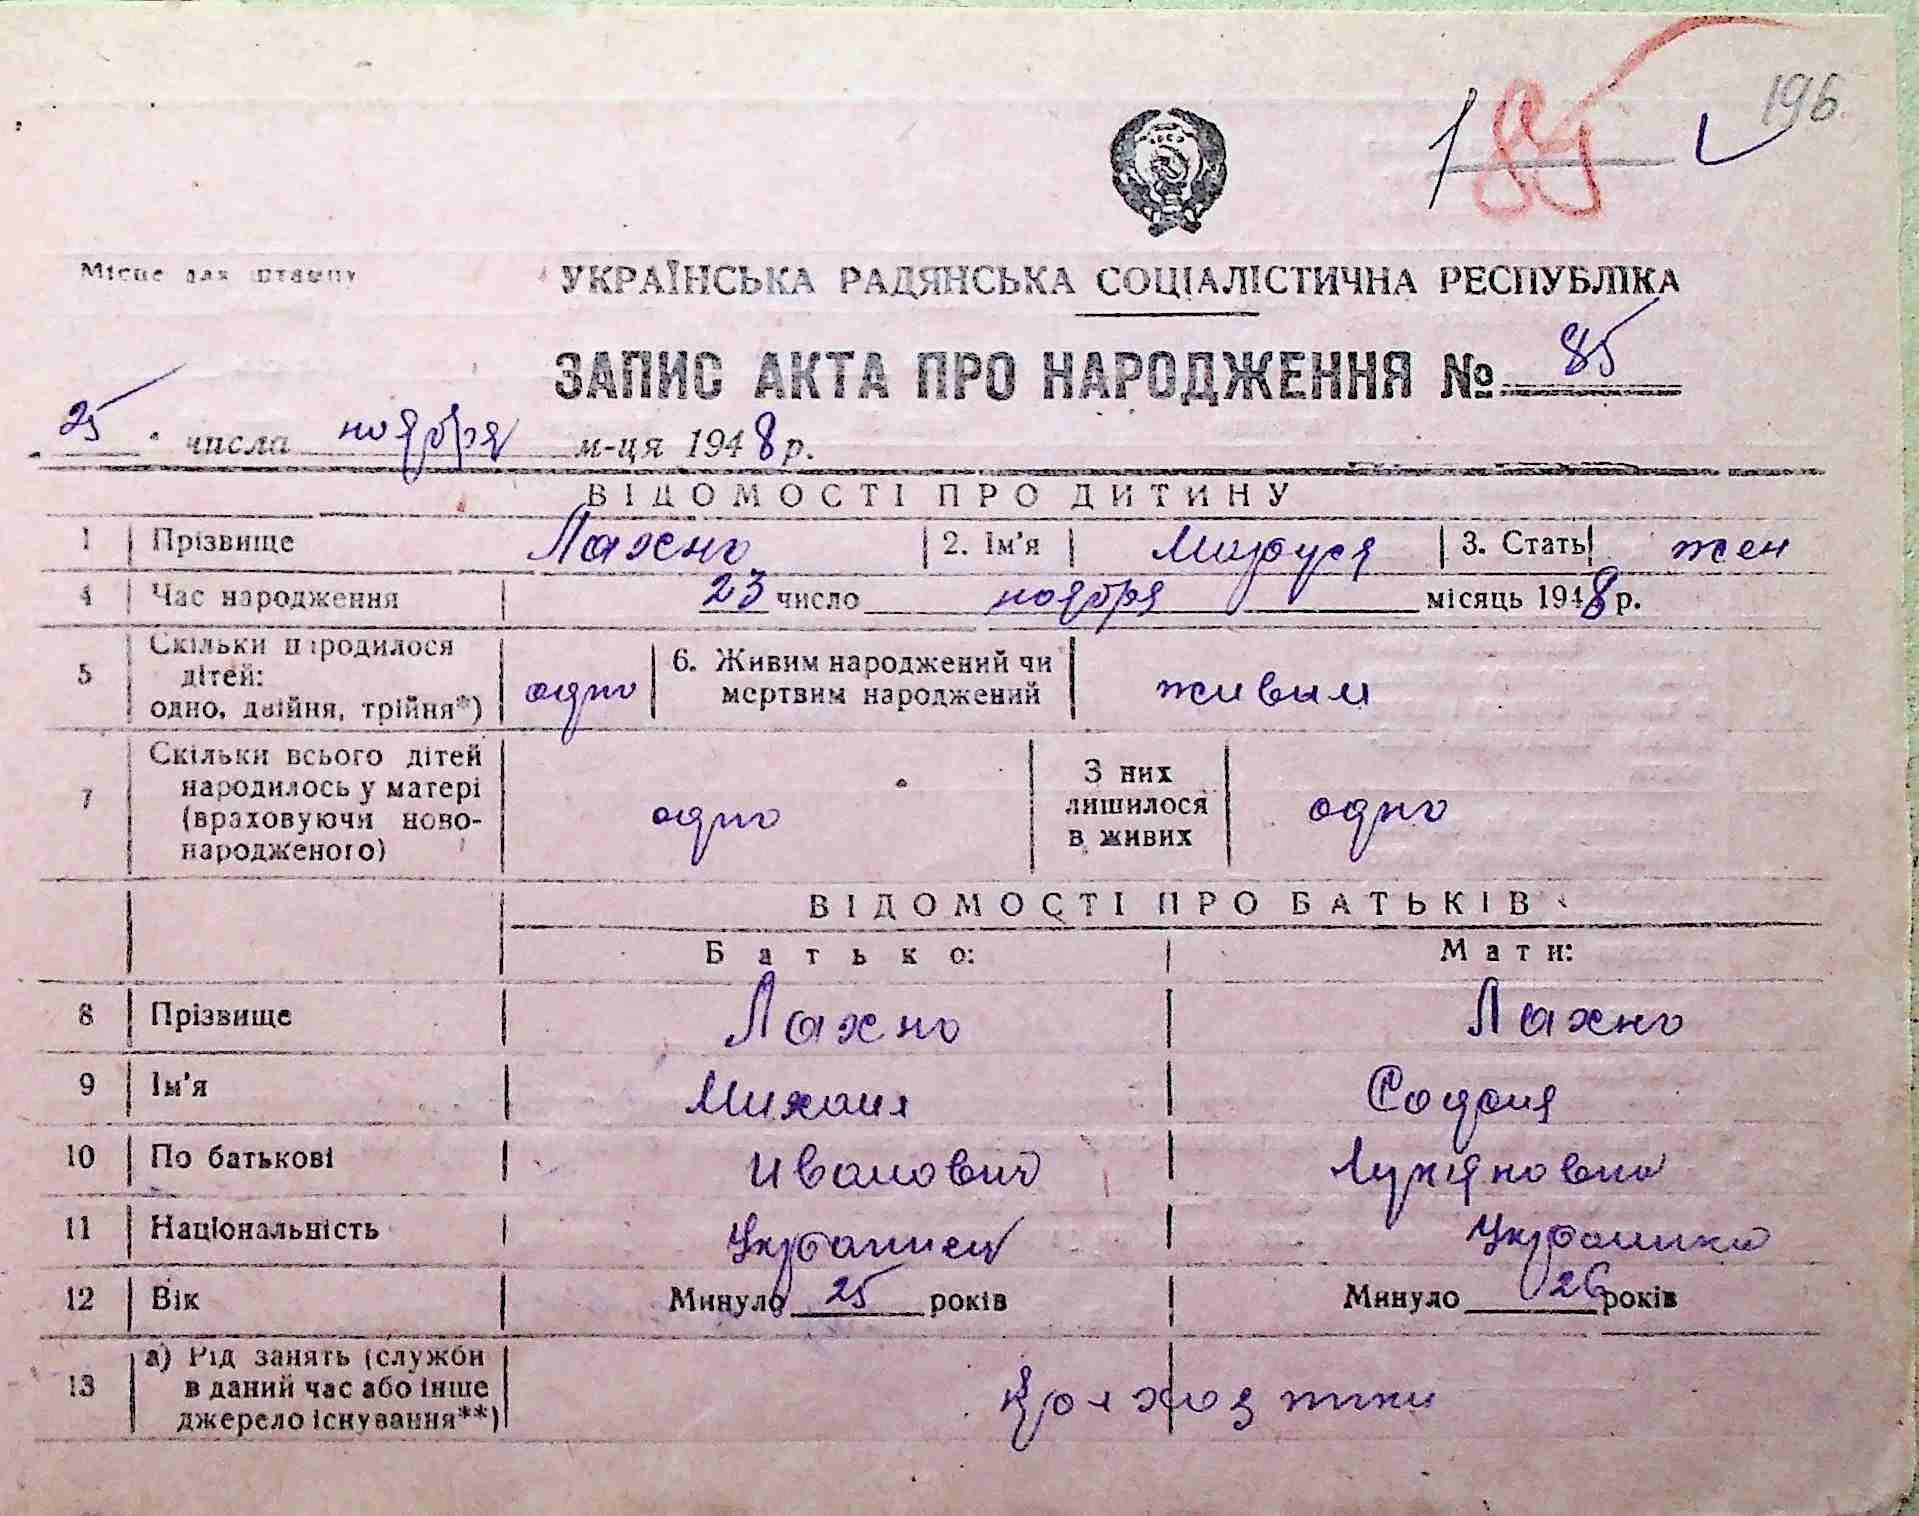 196.
1 85
Місце для штампу
УКРАЇНСЬКА РАДЯНСЬКА СОЦІАЛІСТИЧНА РЕСПУБЛІКА
ЗАПИС АКТА ПРО НАРОДЖЕННЯ № 85
25 числа ноября м-ця 1948 р.
ВІДОМОСТІ ПРО ДИТИНУ
1 Прізвище Лахно 2. Ім'я Маруся 3. Стать жен
4 Час народження 23 число ноября місяць 1948 р.
5 Скільки народилося
дітей:
одно, двійня, трійня*) одно 6. Живим народжений чи
мертвим народжений живым
7 Скільки всього дітей
народилось у матері
(враховуючи ново-
народженого) одно З них
лишилося
в живих одно
ВІДОМОСТІ ПРО БАТЬКІВ
Батько: Мати:
8 Прізвище Лахно Лахно
9 Ім'я Михаил София
10 По батькові Иванович Лукяновна
11 Національність Украинец Украинка
12 Вік Минуло 25 років Минуло 26 років
13 а) Рід занять (служби
в даний час або інше
джерело існування**) Колхозники